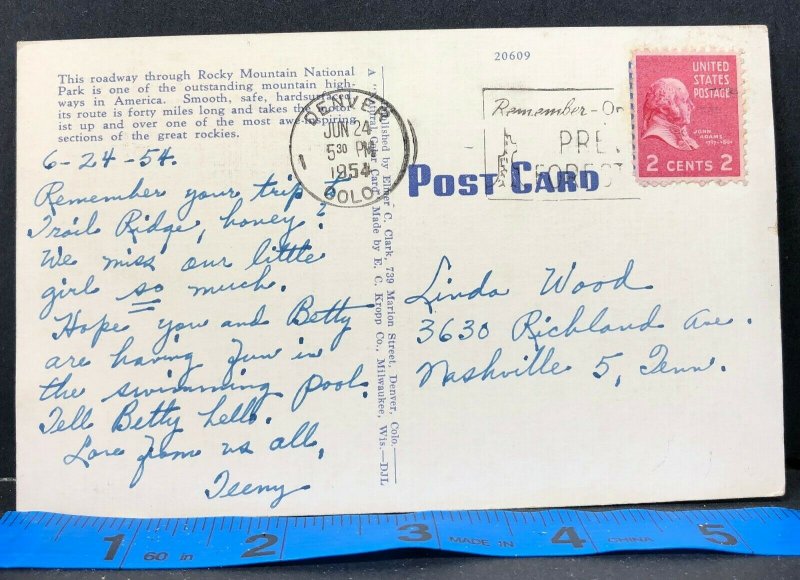 20609
This roadway through Rocky Mountain National
Park is one of the outstanding mountain high-
ways in America. Smooth, safe, hardsurfaced,
its route is forty miles long and takes the motor-
ist up and over one of the most awe-inspiring
sections of the great rockies.
6-24-54.
Remember your trip to
Trail Ridge, honey?
We miss our little
girl so much.
Hope you and Betty
are having fun in
the swimming pool.
Tell Betty hello.
Love from us all,
Teeny
Published by Elmer C. Clark, 739 Marion Street, Denver, Colo.
Color Card Made by E. C. Kropp Co., Milwaukee, Wis.—DJL
DENVER
JUN 24
5 30 PM
1954
COLO.
1
Remember-On
PRE
FOREST
POST CARD
UNITED
STATES
POSTAGE
JOHN
ADAMS
2 CENTS 2
Linda Wood
3630 Richland Ave.
Nashville 5, Tenn.
1 60 in 2 3 MADE IN 4 CHINA 5